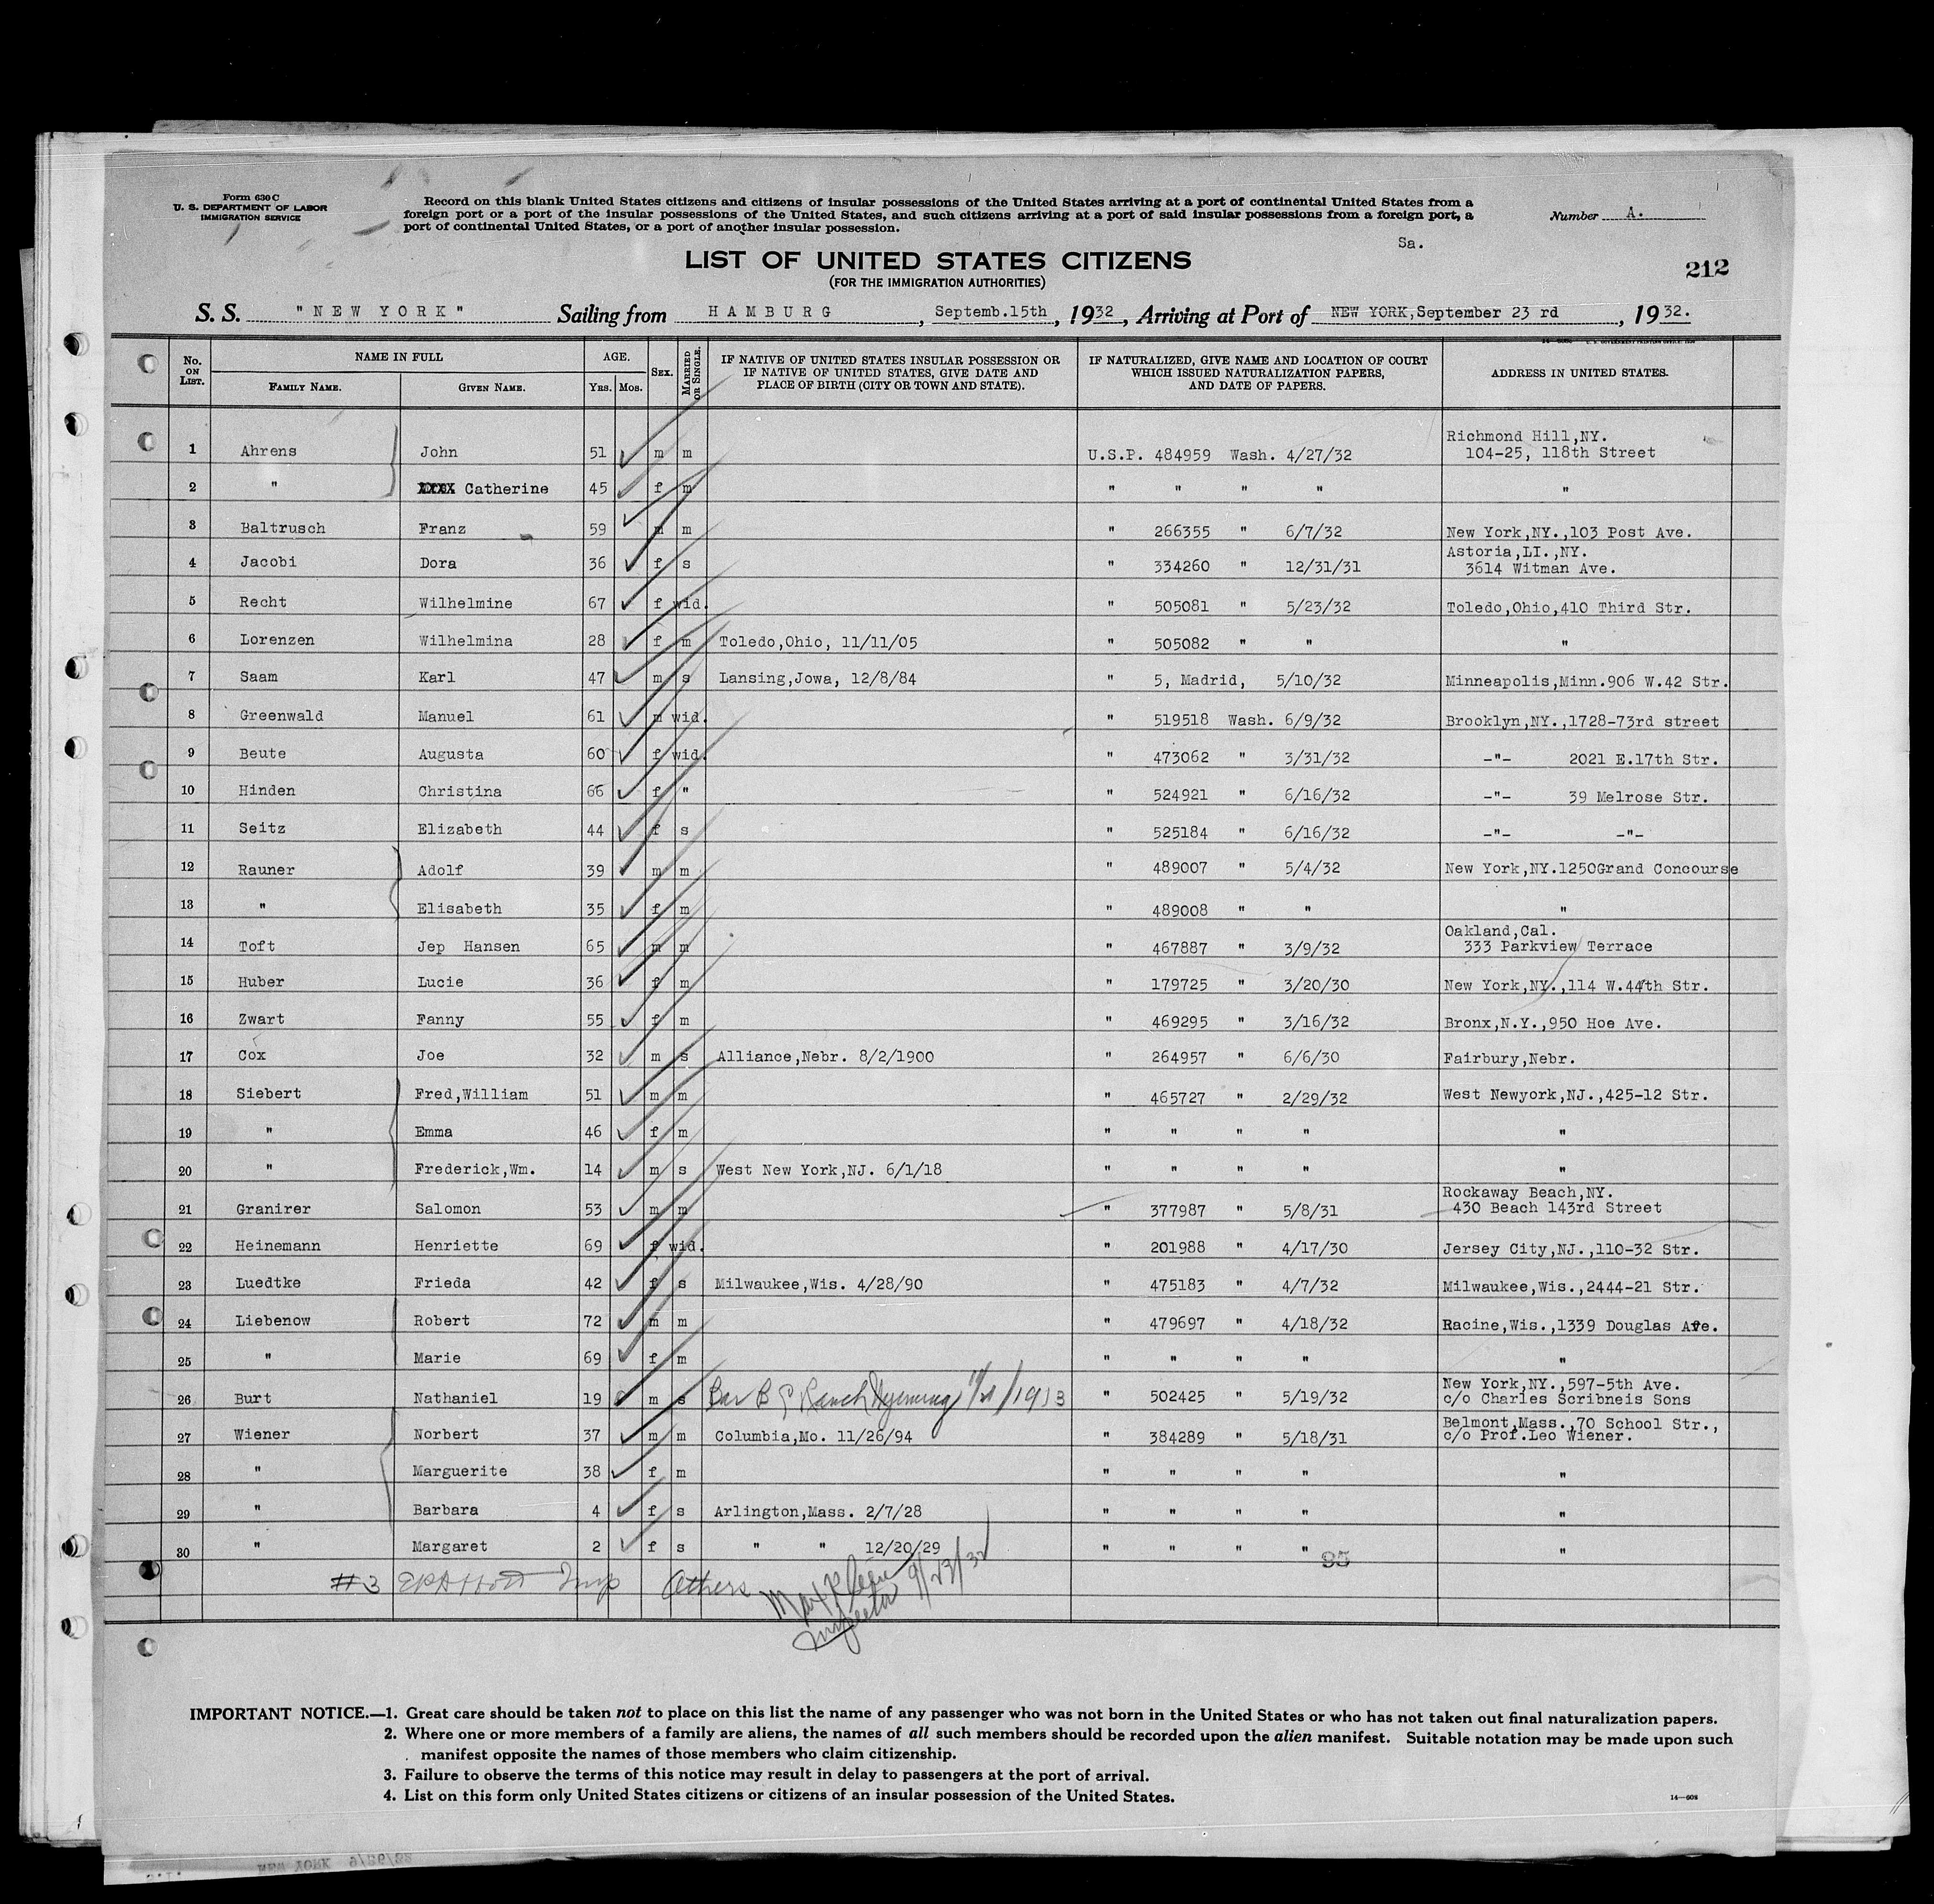 Form 630 C
U. S. DEPARTMENT OF LABOR
IMMIGRATION SERVICE
Record on this blank United States citizens and citizens of insular possessions of the United States arriving at a port of continental United States from a
foreign port or a port of the insular possessions of the United States, and such citizens arriving at a port of said insular possessions from a foreign port, a
port of continental United States, or a port of another insular possession.
Number A.
Sa.
LIST OF UNITED STATES CITIZENS
(FOR THE IMMIGRATION AUTHORITIES)
212
S. S. "NEW YORK" Sailing from HAMBURG, Septemb.15th, 1932, Arriving at Port of NEW YORK,September 23 rd, 1932.
No. ON LIST. NAME IN FULL FAMILY NAME. GIVEN NAME. AGE. YRS. MOS. SEX. MARRIED OR SINGLE. IF NATIVE OF UNITED STATES INSULAR POSSESSION OR IF NATIVE OF UNITED STATES, GIVE DATE AND PLACE OF BIRTH (CITY OR TOWN AND STATE). IF NATURALIZED, GIVE NAME AND LOCATION OF COURT WHICH ISSUED NATURALIZATION PAPERS, AND DATE OF PAPERS. ADDRESS IN UNITED STATES.
1 Ahrens John 51 m m U.S.P. 484959 Wash. 4/27/32 Richmond Hill,NY. 104-25, 118th Street
2 " Catherine 45 f m " " " " "
3 Baltrusch Franz 59 m m " 266355 " 6/7/32 New York,NY.,103 Post Ave.
4 Jacobi Dora 36 f s " 334260 " 12/31/31 Astoria,LI.,NY. 3614 Witman Ave.
5 Recht Wilhelmine 67 f wid. " 505081 " 5/23/32 Toledo,Ohio,410 Third Str.
6 Lorenzen Wilhelmina 28 f m Toledo,Ohio, 11/11/05 " 505082 " " "
7 Saam Karl 47 m s Lansing,Jowa, 12/8/84 " 5, Madrid, 5/10/32 Minneapolis,Minn.906 W.42 Str.
8 Greenwald Manuel 61 m wid. " 519518 Wash. 6/9/32 Brooklyn,NY.,1728-73rd street
9 Beute Augusta 60 f wid. " 473062 " 3/31/32 -"- 2021 E.17th Str.
10 Hinden Christina 66 f " " 524921 " 6/16/32 -"- 39 Melrose Str.
11 Seitz Elizabeth 44 f s " 525184 " 6/16/32 -"- -"-
12 Rauner Adolf 39 m m " 489007 " 5/4/32 New York,NY.1250Grand Concourse
13 " Elisabeth 35 f m " 489008 " " "
14 Toft Jep Hansen 65 m m " 467887 " 3/9/32 Oakland,Cal. 333 Parkview Terrace
15 Huber Lucie 36 f m " 179725 " 3/20/30 New York,NY.,114 W.44th Str.
16 Zwart Fanny 55 f m " 469295 " 3/16/32 Bronx,N.Y.,950 Hoe Ave.
17 Cox Joe 32 m s Alliance,Nebr. 8/2/1900 " 264957 " 6/6/30 Fairbury,Nebr.
18 Siebert Fred,William 51 m m " 465727 " 2/29/32 West Newyork,NJ.,425-12 Str.
19 " Emma 46 f m " " " " "
20 " Frederick,Wm. 14 m s West New York,NJ. 6/1/18 " " " " "
21 Granirer Salomon 53 m m " 377987 " 5/8/31 Rockaway Beach,NY. 430 Beach 143rd Street
22 Heinemann Henriette 69 f wid. " 201988 " 4/17/30 Jersey City,NJ.,110-32 Str.
23 Luedtke Frieda 42 f s Milwaukee,Wis. 4/28/90 " 475183 " 4/7/32 Milwaukee,Wis.,2444-21 Str.
24 Liebenow Robert 72 m m " 479697 " 4/18/32 Racine,Wis.,1339 Douglas Ave.
25 " Marie 69 f m " " " " "
26 Burt Nathaniel 19 m s Bar B C Ranch Wyoming 1913 " 502425 " 5/19/32 New York,NY.,597-5th Ave. c/o Charles Scribneis Sons
27 Wiener Norbert 37 m m Columbia,Mo. 11/26/94 " 384289 " 5/18/31 Belmont,Mass.,70 School Str., c/o Prof.Leo Wiener.
28 " Marguerite 38 f m " " " " "
29 " Barbara 4 f s Arlington,Mass. 2/7/28 " " " " "
30 " Margaret 2 f s " " 12/20/29 " " " " "
95
#3 Insp Others
Inspector 9/23/32
IMPORTANT NOTICE.—1. Great care should be taken not to place on this list the name of any passenger who was not born in the United States or who has not taken out final naturalization papers.
2. Where one or more members of a family are aliens, the names of all such members should be recorded upon the alien manifest. Suitable notation may be made upon such
manifest opposite the names of those members who claim citizenship.
3. Failure to observe the terms of this notice may result in delay to passengers at the port of arrival.
4. List on this form only United States citizens or citizens of an insular possession of the United States.
14—608